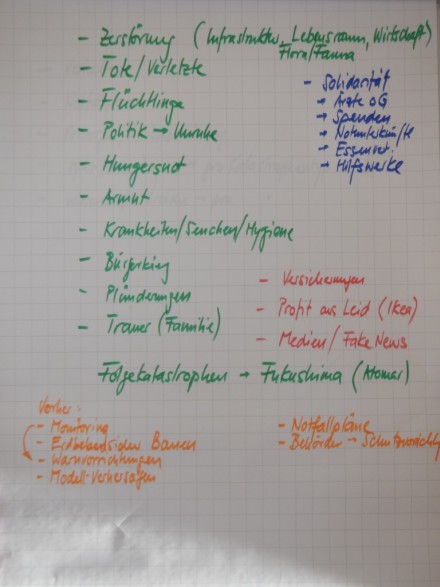 - Zerstörung (Infrastruktur, Lebensraum, Wirtschaft)
Flora/Fauna
- Tote/Verletzte
- Flüchtlinge
- Politik → Unruhe
- Hungersnot
- Armut
- Krankheiten/Seuchen/Hygiene
- Bürgerkrieg
- Plünderungen
- Trauer (Familie)
- Solidarität
→ Ärzte oG
→ Spenden
→ Notunterkünfte
→ Essenvert.
→ Hilfswerke
- Versicherungen
- Profit aus Leid (Ikea)
- Medien/Fake News
Folgekatastrophen → Fukushima (Homer)
Vorher:
- Monitoring
- Erdbebensicher Bauen
- Warnvorrichtungen
- Modell-Vorhersagen
- Notfallpläne
- Behörden →